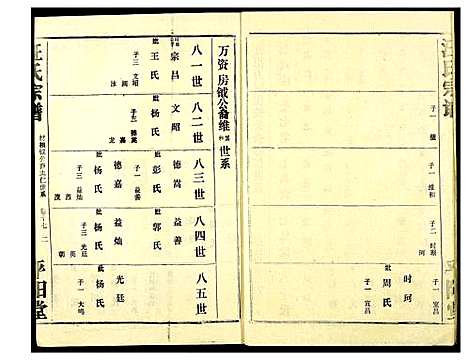 汪氏宗谱
子一 儀
子一 维和
子二 时瑚
珂
时珂
妣 周氏
子一 宜昌
平阳堂
万资房钺公裔维和世系
八一世
宗昌
妣 王氏
子三 文昭
八二世
文昭
妣 杨氏
子三 德嵩
嘉
龙
八三世
德嵩
妣 彭氏
子一 益善
德嘉
妣 杨氏
子三 益灿
八四世
益善
妣 郭氏
益灿
妣 杨氏
子三 光廷
英
朝
八五世
光廷
妣 杨氏
子一 大鸣
汪氏宗谱
平阳堂